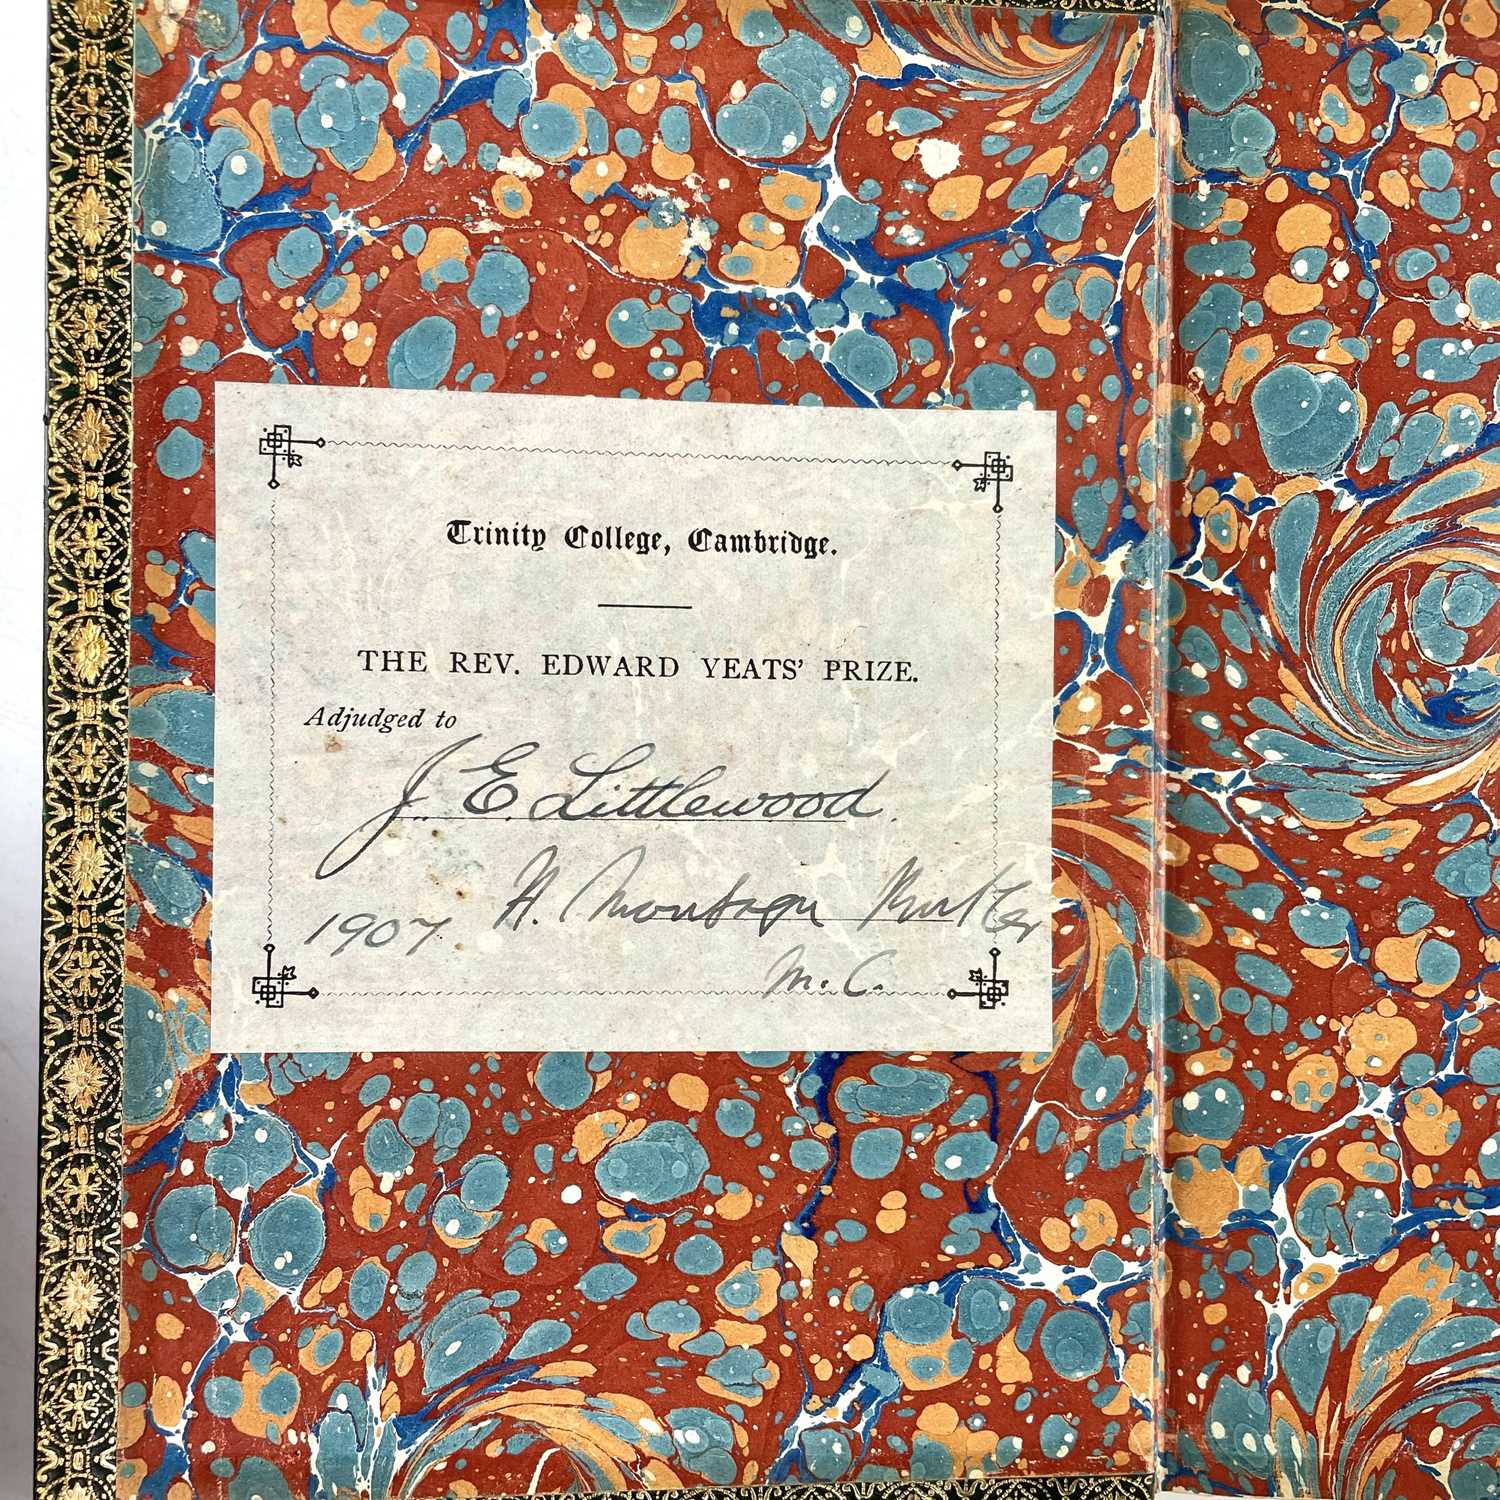 Trinity College, Cambridge.
THE REV. EDWARD YEATS' PRIZE.
Adjudged to
J. E. Littlewood.
H. Montagu Butler
1907
M. C.